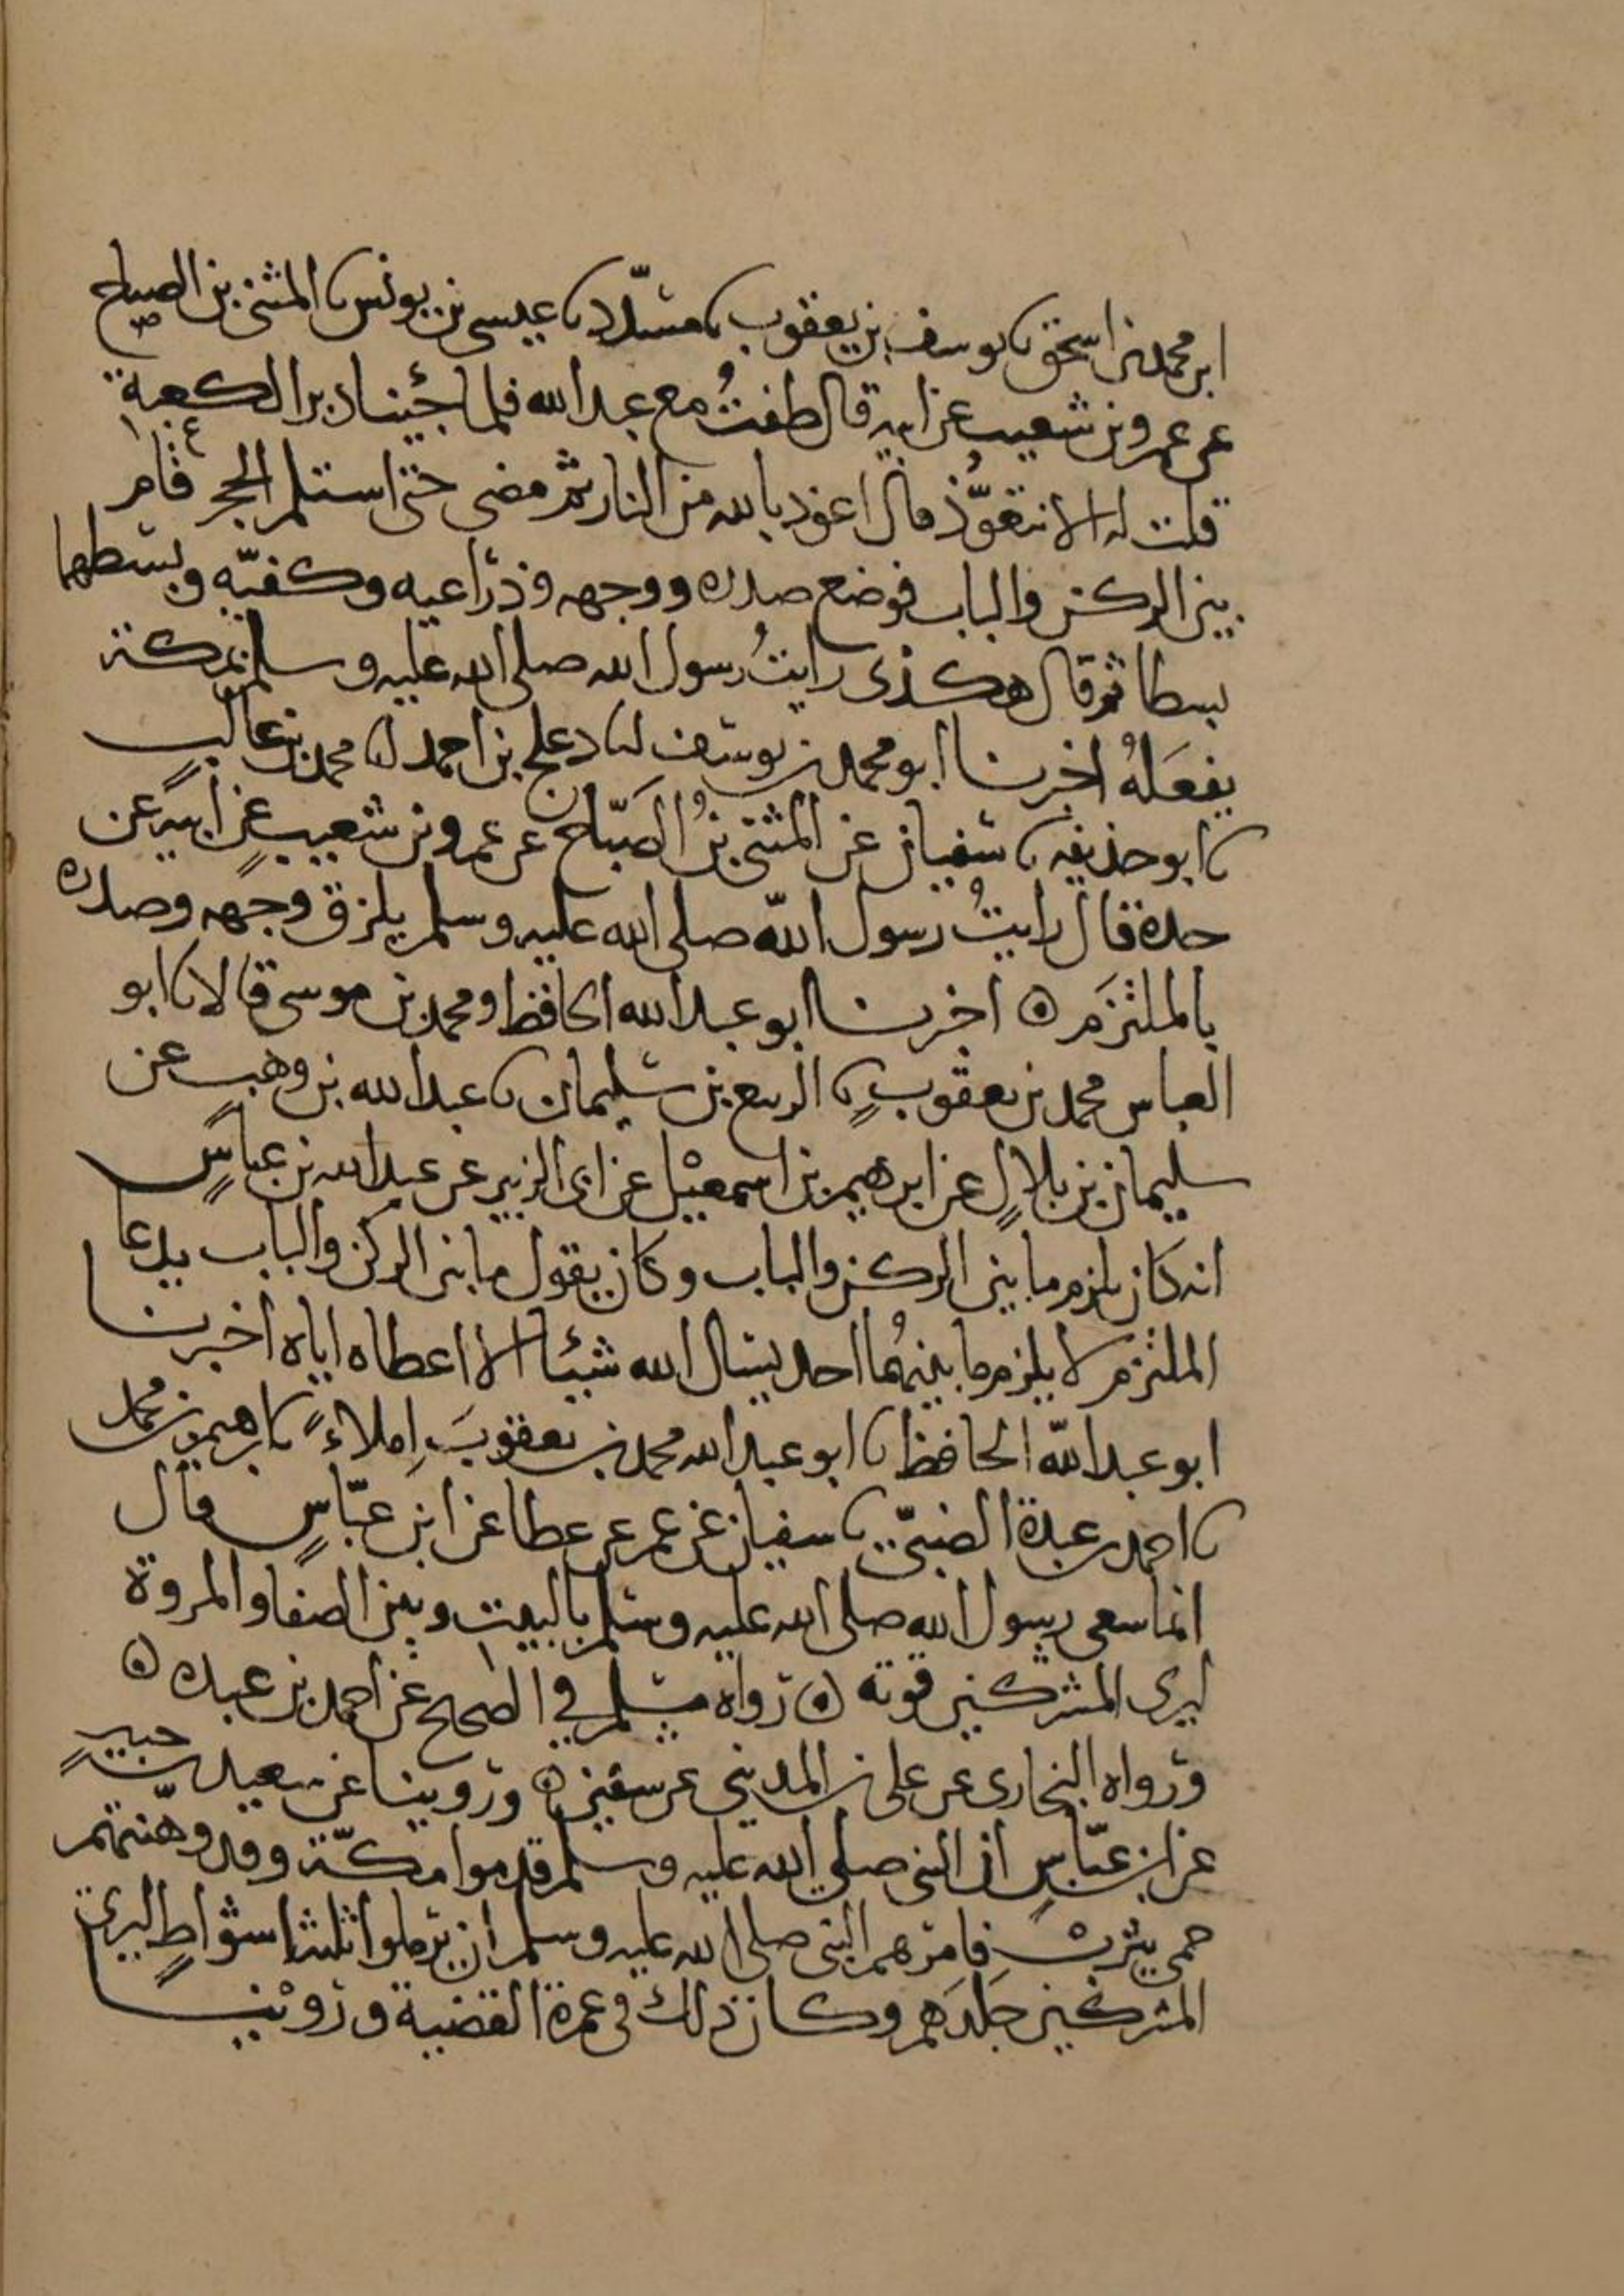 ابن محمد بن اسحق نا يوسف بن يعقوب نا مسدّد نا عيسى بن يونس نا المثنى بن الصباح
عن عمرو بن شعيب عن ابيه قال طفتُ مع عبد الله فلما جئنا دبر الكعبة
قلت له الا تتعوّذ قال اعوذ بالله من النار ثم مضى حتى استلم الحجر قام
بين الركن والباب فوضع صدره ووجهه وذراعيه وكفيّه وبسطهما
بسطا ثم قال هكذى رايتُ رسول الله صلى الله عليه وسلم بمكة
يفعَلهُ اخبرنا ابو محمد بن يوسف نا دعلج بن احمد نا محمد بن غالبٍ
نا ابو حذيفه نا سفيان عن المثنى بنُ الصَبّاح عن عمرو بن شعيبٍ عن ابيه عن
جده قال رايتُ رسول اللّه صلى الله عليه وسلم يلزق وجهه وصدره
بالملتزَم ه اخبرنا ابو عبد الله الحافظ ومحمد بن موسى قالا نا ابو
العباس محمد بن يعقوبٍ نا الربيع بن سليمان نا عبد الله بن وهب عن
سليمان بن بلالٍ عن ابرهيم بن اسمعيْل عن ابى الزبير عن عبد الله بن عباسٍ
انه كان يلزم ما بين الركن والباب وكان يقول ما بين الركن والباب يدعا
الملتزم لا يلزم ما بينهُما احد يسال الله شيئا الا اعطاه اياه اخبرنا
ابو عبد اللّه الحافظ نا ابو عبد الله محمد بن يعقوبَ اِملاءً نا ابرهيم بن محمد
نا احمد بن عبدة الضبىّ نا سفيان عن عمر عن عطا عن ابن عبّاسٍ قال
انما سعى رسول الله صلى الله عليه وسلم بالبيت وبين الصفا والمروة
ليرى المشركين قوته ه رواه مسلم في الصحيح عن احمد بن عبده ه
ورواه البخارى عن على بن المدينى عن سفين ه وروينا عن سعيد بن جبيرٍ
عن ابن عبّاسٍ ان النبى صلى الله عليه وسلم قدموا مكّة وقد وهّنتهم
حمى يثرب فامرهم النبى صلى الله عليه وسلم ان يرملوا ثلثة اشواطٍ ليرى
المشركين جَلَدَهم وكان ذلك فى عمرة القضية وروْينا